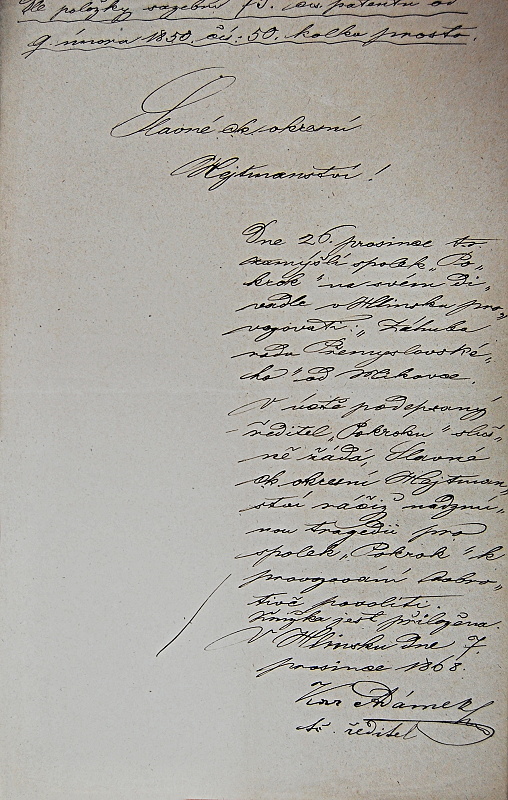 Dle položky sazební 75. cís. patentu od
9. února 1850. čís: 50. kolku prosto.
Slavné ck. okresní
Hejtmanství!
Dne 26. prosince t.r.
zamýšlí spolek „Po„
krok" na svém di„
vadle v Hlinsku pro„
vozovati: „Záhuba
rodu Přemyslovské„
ho" od Mikovce.
V úctě podepsaný
ředitel „Pokroku" sluš„
ně žádá, Slavné
ck. okresní Hejtman„
ství račiž nadzmí„
nou tragedii pro
spolek „Pokrok" k
provozování dobro„
tivě povoliti.
Knížka jest přiložena.
V Hlinsku dne 7.
prosince 1868.
Kar Adámek
tč. ředitel